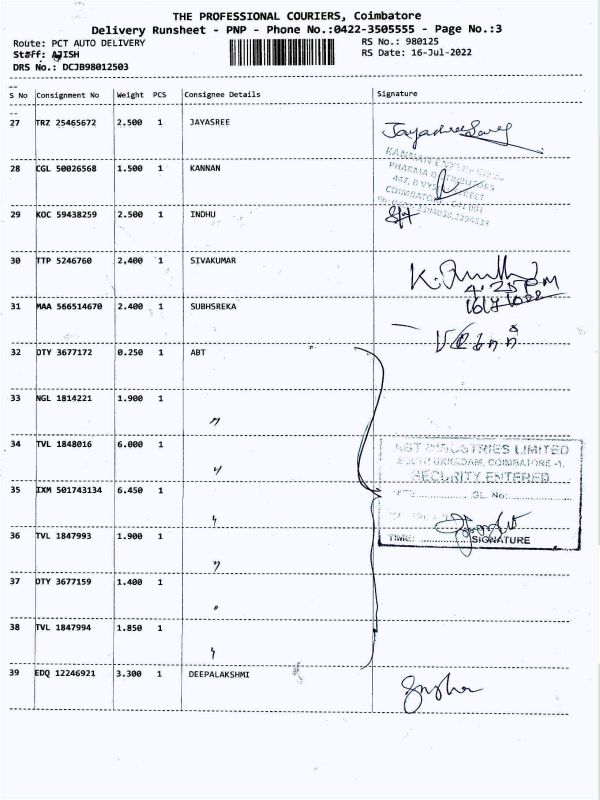 THE PROFESSIONAL COURIERS, Coimbatore
Delivery Runsheet - PNP - Phone No.:0422-3505555 - Page No.:3
Route: PCT AUTO DELIVERY
RS No.: 980125
Staff: AJISH
RS Date: 16-Jul-2022
DRS No.: DCJB98012503
S No Consignment No Weight PCS Consignee Details Signature
27 TRZ 25465672 2.500 1 JAYASREE
28 CGL 50026568 1.500 1 KANNAN
KANNAN
PHARMA
COIMBATORE
29 KOC 59438259 2.500 1 INDHU
30 TTP 5246760 2.400 1 SIVAKUMAR
4:25 PM
31 MAA 566514670 2.400 1 SUBHSREKA
32 OTY 3677172 0.250 1 ABT
33 NGL 1814221 1.900 1
〃
34 TVL 1848016 6.000 1
〃
ABT INDUSTRIES LIMITED
COIMBATORE -1.
SECURITY ENTERED
35 IXM 501743134 6.450 1
〃
GL. No:
36 TVL 1847993 1.900 1
〃
TIME: SIGNATURE
37 OTY 3677159 1.400 1
〃
38 TVL 1847994 1.850 1
〃
39 EDQ 12246921 3.300 1 DEEPALAKSHMI